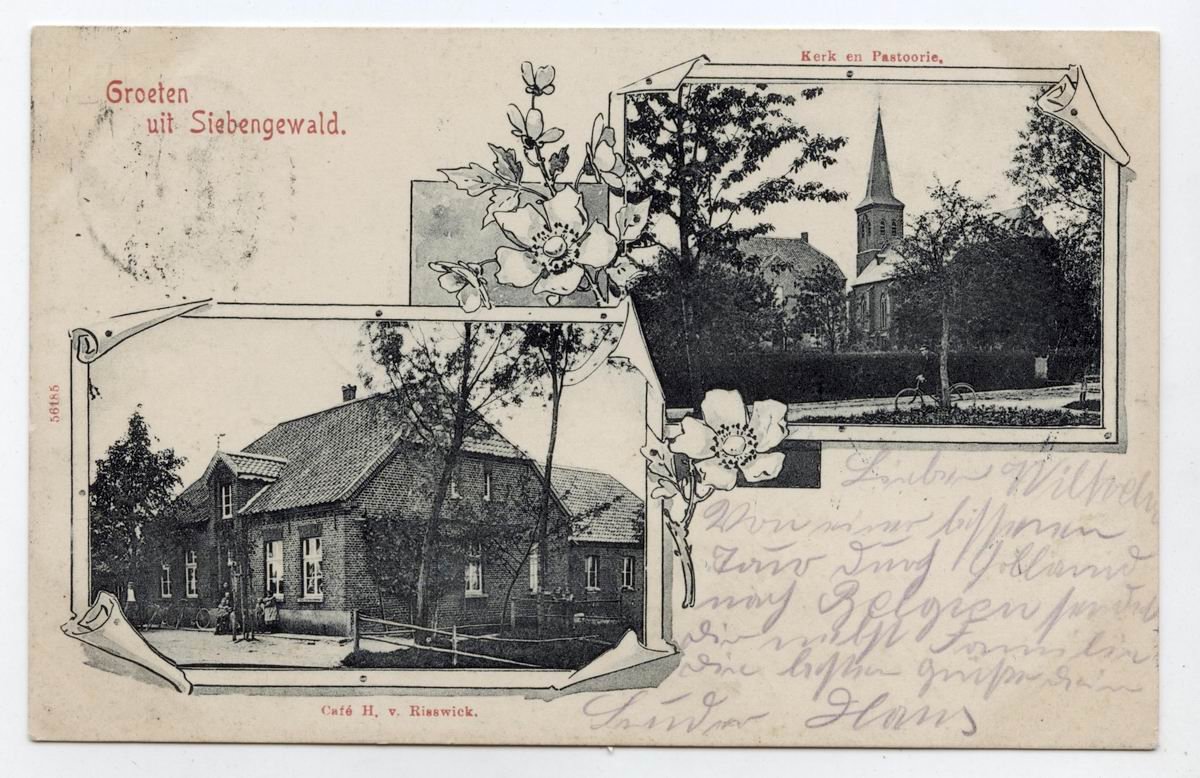 Groeten
uit Siebengewald.
Kerk en Pastoorie.
56185
Café H. v. Risswick.
Lieber Wilhelm
Von einer
Tour durch Holland
nach Belgien sendet
dir nebst Familie
die besten Grüße dein
Bruder Hans